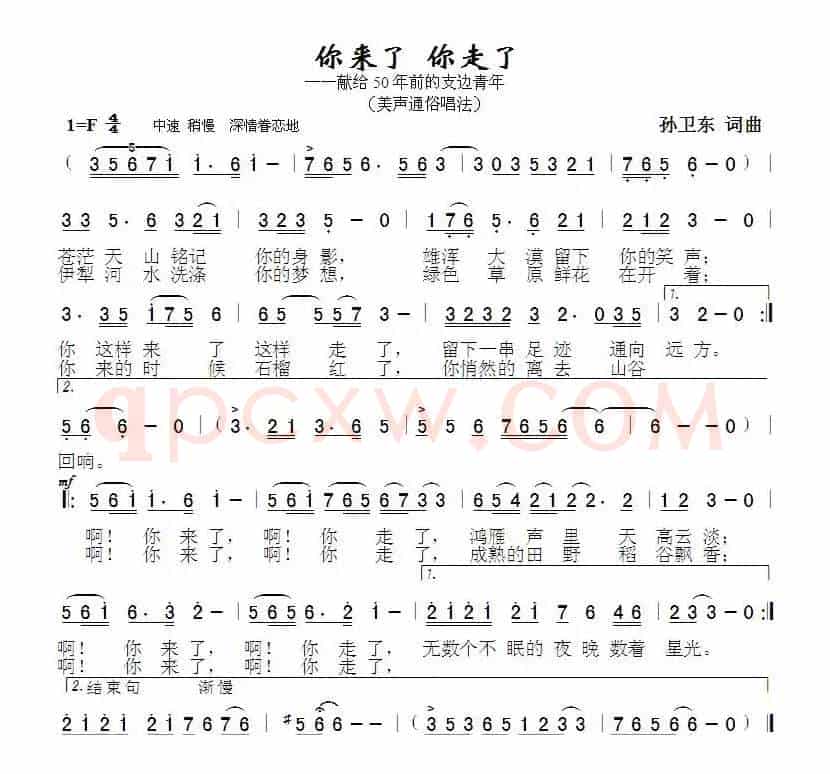 你来了 你走了
——献给50年前的支边青年
（美声通俗唱法）
1=F 4/4 中速 稍慢 深情眷恋地 孙卫东 词曲
（ 3 5 6 7 1 1· 6 1 － | 7 6 5 6· 5 3 | 3 0 3 5 3 2 1 | 7 6 5 6 － 0 ）|
3 3 5· 6 3 2 1 | 2 3 5 － 0 | 1 7 6 5· 6 2 1 | 2 1 2 3 － 0 |
苍茫 天 山 铭记 你的 身 影， 雄浑 大 漠 留下 你的 笑 声；
伊犁 河 水 洗涤 你的 梦 想， 绿色 草 原 鲜花 在开 着；
1.
3· 3 5 1 7 5 6 | 6 5 5 5 7 3 － | 3 2 3 2 3 2· 0 3 5 | 3 2 － 0 :|
你 这样 来 了 这样 走 了， 留下一串 足 迹 通向 远 方。
你 来的 时 候 石榴 红 了， 你悄然的 离 去 山谷
2.
qpcxw.COM
5 6 6 － 0 |（ 3· 2 1 3· 2 1 | 5 5 6 7 6 5 6 6 | 6 － － 0 ）|
回响。
mf
|: 5 6 1 1· 6 1 － | 5 6 1 7 6 5 6 7 3 3 | 6 5 4 2 1 2 2· 2 | 1 2 3 － 0 |
啊！ 你 来 了， 啊！ 你 走 了， 鸿雁 声 里 天 高云 淡；
啊！ 你 来 了， 啊！ 你 走 了， 成熟的 田 野 稻 谷飘 香；
1.
5 6 1 6· 3 2 | 5 6 5 6· 2 1 － | 2 1 2 1 2 1 7 6 4 6 | 2 3 3 － 0 :|
啊！ 你 来 了， 啊！ 你 走 了， 无数个不 眠的 夜 晚 数着 星光。
啊！ 你 来 了， 啊！ 你 走 了，
2. 结束句 渐慢
2 1 2 1 2 1 7 6 7 6 | #5 6 6 － － |（ 3 5 3 6 5 1 2 3 3 | 7 6 5 6 6 － 0 ）‖